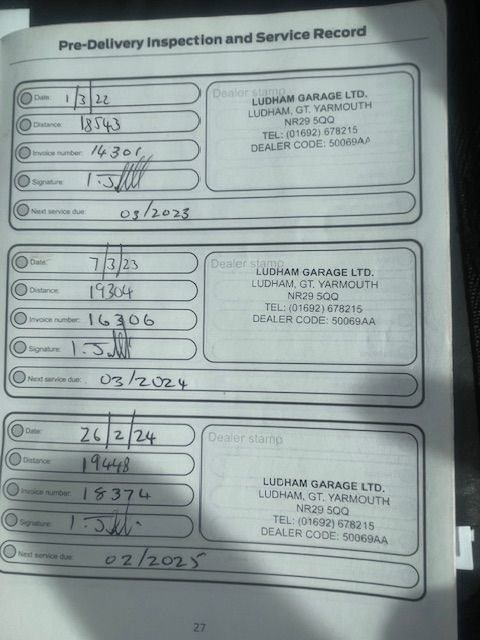 Pre-Delivery Inspection and Service Record
Date: 1/3/22
Distance: 18543
Invoice number: 14301
Signature:
Next service due: 03/2023
Dealer stamp
LUDHAM GARAGE LTD.
LUDHAM, GT. YARMOUTH
NR29 5QQ
TEL: (01692) 678215
DEALER CODE: 50069AA
Date: 7/3/23
Distance: 19304
Invoice number: 16306
Signature:
Next service due: 03/2024
Dealer stamp
LUDHAM GARAGE LTD.
LUDHAM, GT. YARMOUTH
NR29 5QQ
TEL: (01692) 678215
DEALER CODE: 50069AA
Date: 26/2/24
Distance: 19448
Invoice number: 18374
Signature:
Next service due: 02/2025
Dealer stamp
LUDHAM GARAGE LTD.
LUDHAM, GT. YARMOUTH
NR29 5QQ
TEL: (01692) 678215
DEALER CODE: 50069AA
27